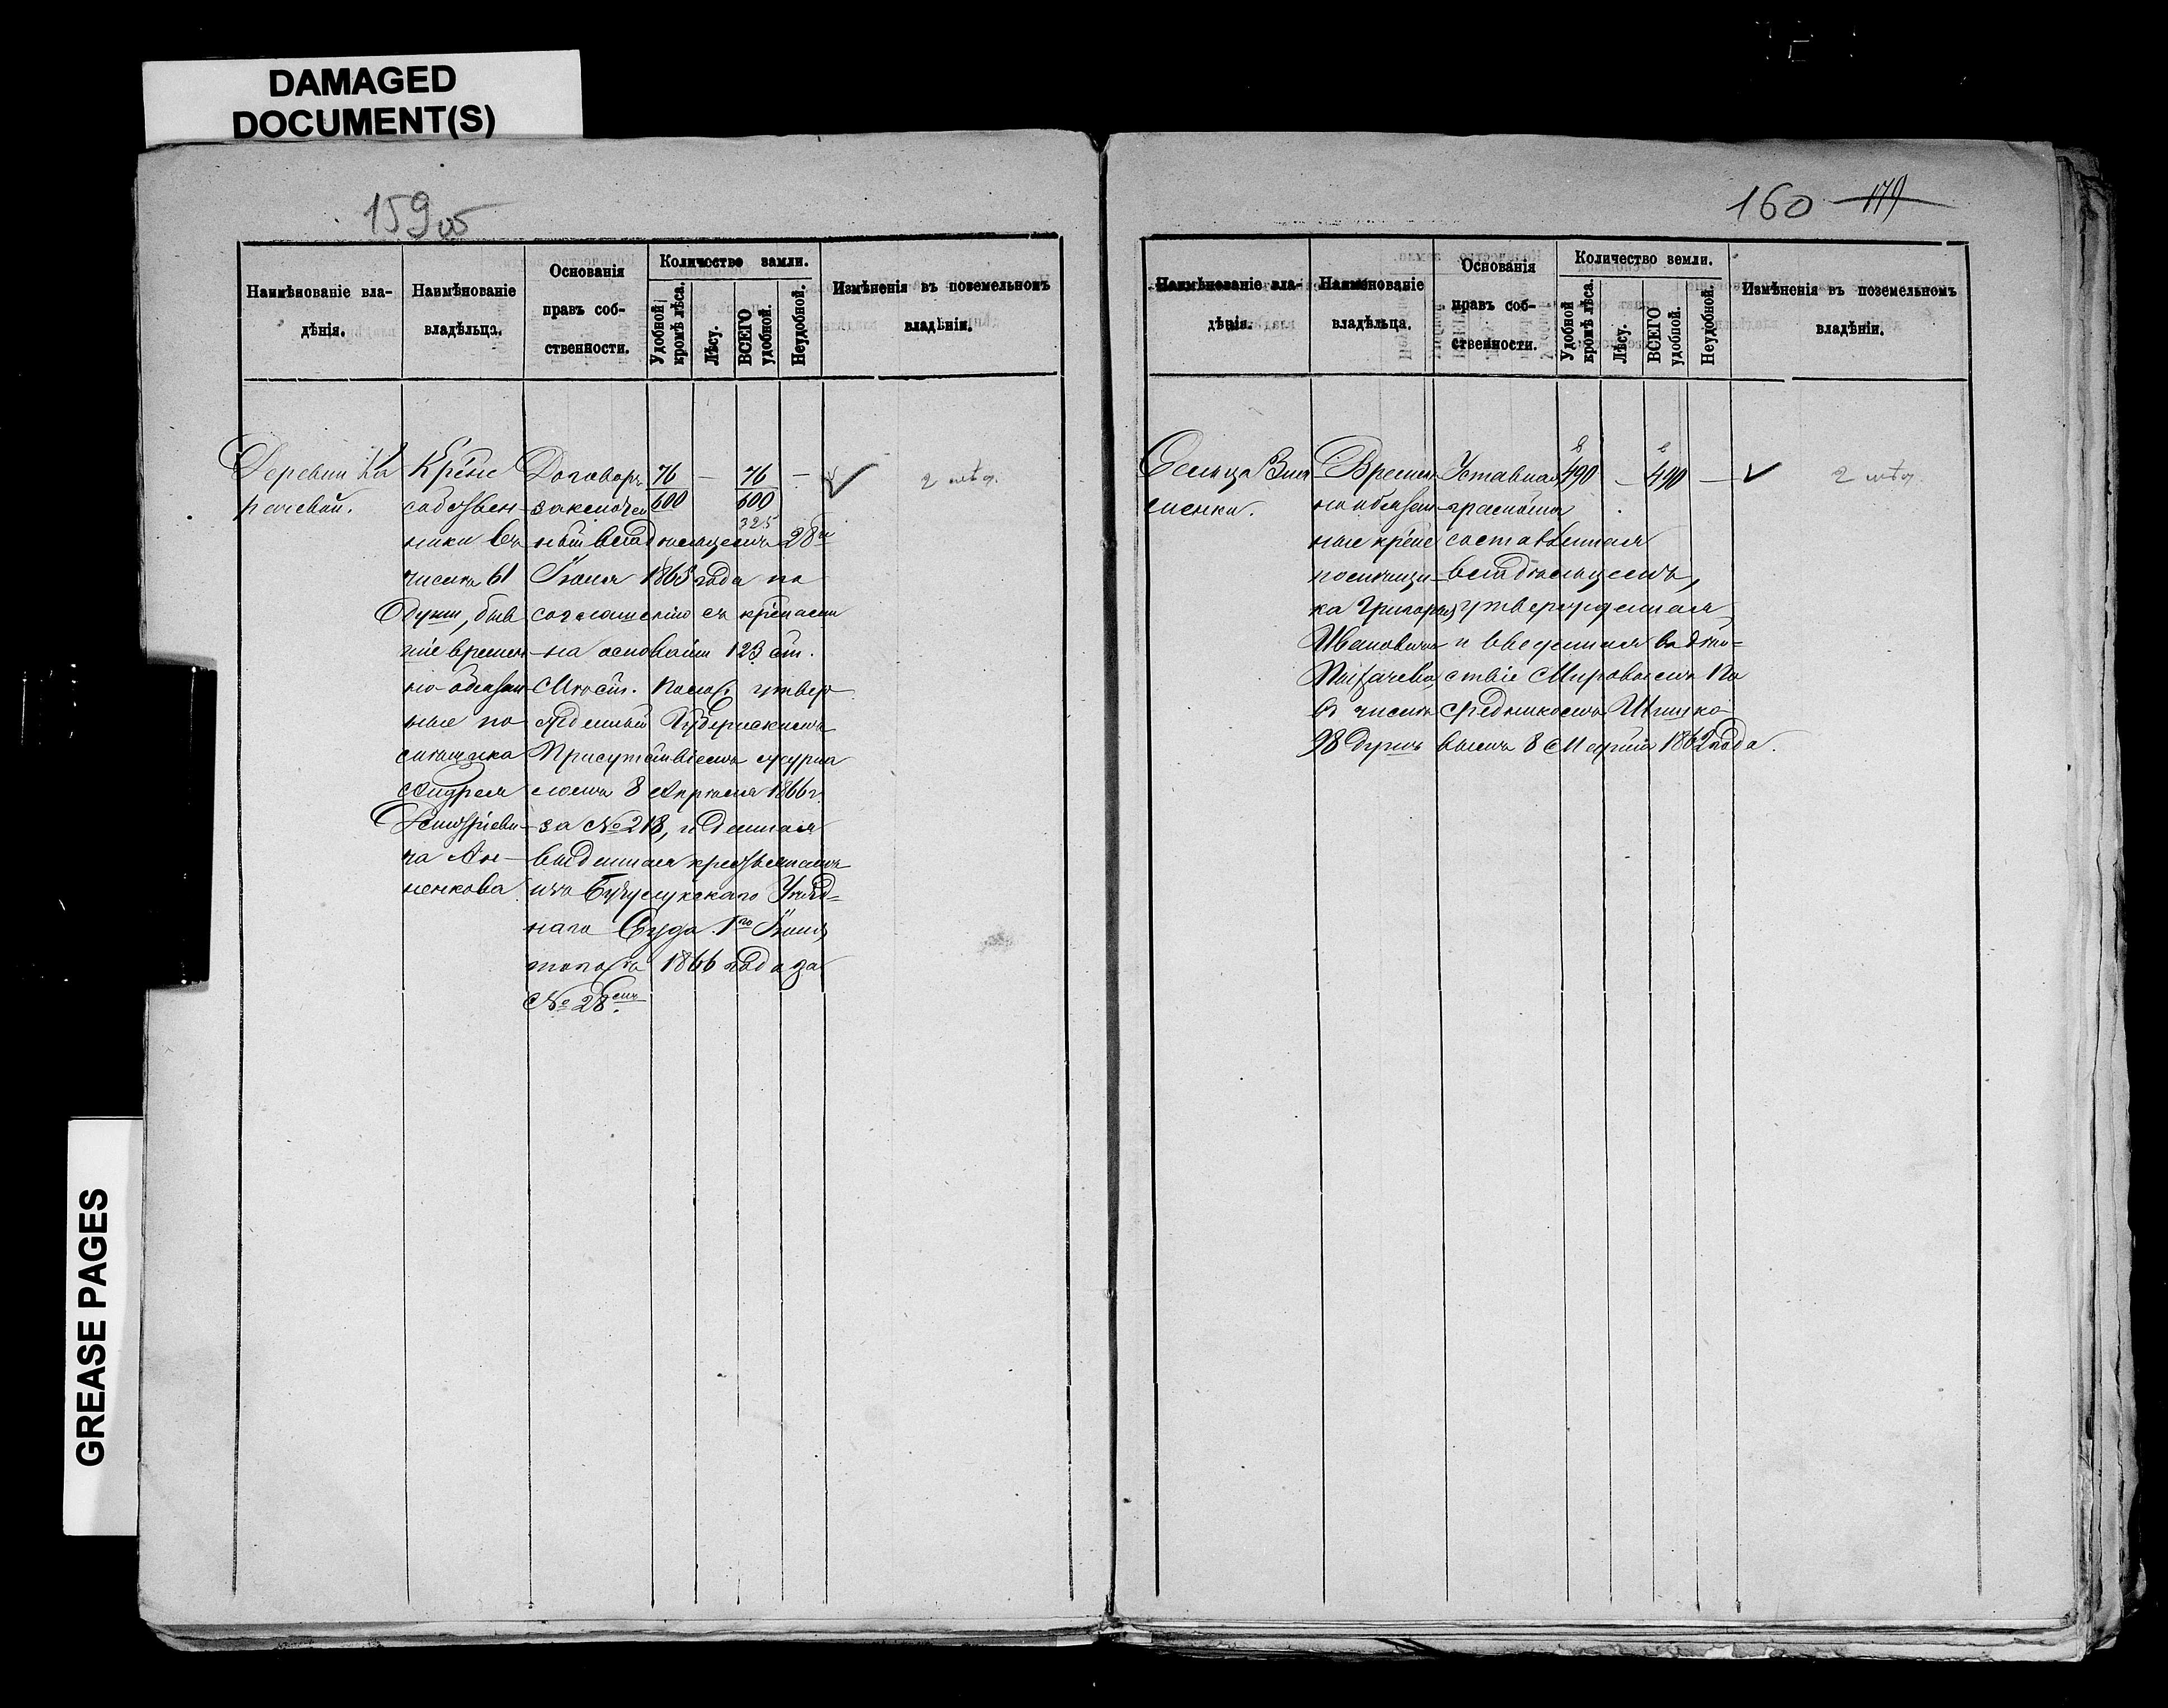 DAMAGED
DOCUMENT(S)
GREASE PAGES
159 об
Наимѣнованіе вла-
дѣнія.
Наимѣнованіе
владѣльца.
Основанія
правъ соб-
ственности.
Количество земли.
Удобной
кромѣ лѣса.
Лѣсу.
ВСЕГО
удобной.
Неудобной.
Измѣненія въ поземельномъ
владѣніи.
Деревни Ка
рачевой.
Крѣне
собствен-
ники въ
числѣ 61
Души, быв
шіе времен-
но-обязан-
ные по
мѣщика
Андрея
Дмитріеви-
ча Ан-
ненкова
Договоръ
заключен
ный владѣльцемъ 28го
Іюля 1865 года по
соглашенію съ крѣнами
на основаніи 123 ст.
Мѣст. Полож. утвер
жденный Губернскимъ
Присутствіемъ журна
ломъ 8 Апрѣля 1866 г.
за № 218, и данная
выданная крестьянамъ
изъ Бузулукскаго Уѣзд=
наго Суда 1го Іюня
того же 1866 года за
№ 28емъ.
76
600
—
76
600
325
—
160 179
Наимѣнованіе вла-
дѣнія.
Наимѣнованіе
владѣльца.
Основанія
правъ соб-
ственности.
Количество земли.
Удобной
кромѣ лѣса.
Лѣсу.
ВСЕГО
удобной.
Неудобной.
Измѣненія въ поземельномъ
владѣніи.
Сельца
Времен-
но обязан-
ные крѣне
помѣщи-
ка Григорія
Ивановича
въ числѣ
98 душъ
Уставная
грамота
составленная
владѣльцемъ,
утвержденная
и введенная въ дѣй=
ствіе Мировымъ По
средникомъ
8 Марта 1862 года.
490
—
490
—